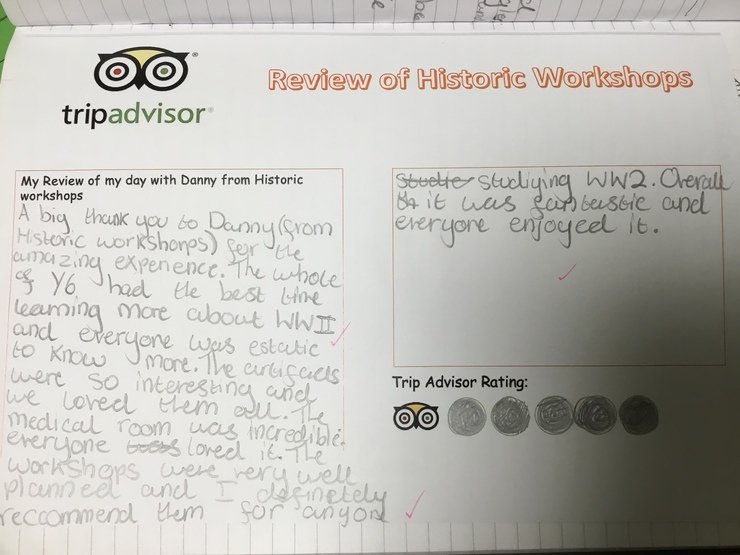 tripadvisor
Review of Historic Workshops
My Review of my day with Danny from Historic
workshops
A big thank you to Danny (from
Historic workshonps) for the
amazing experience. The whole
of Y6 had the best time
learning more about WWII
and everyone was estatic
to know more. The artifacts
were so interesting and
we loved them all. The
medical room was incredible.
everyone loved it. The
workshops were very well
planned and I definetely
reccommend them for anyone
Studie studiying WW2. Overall
it was fantastic and
everyone enjoyed it.
Trip Advisor Rating: